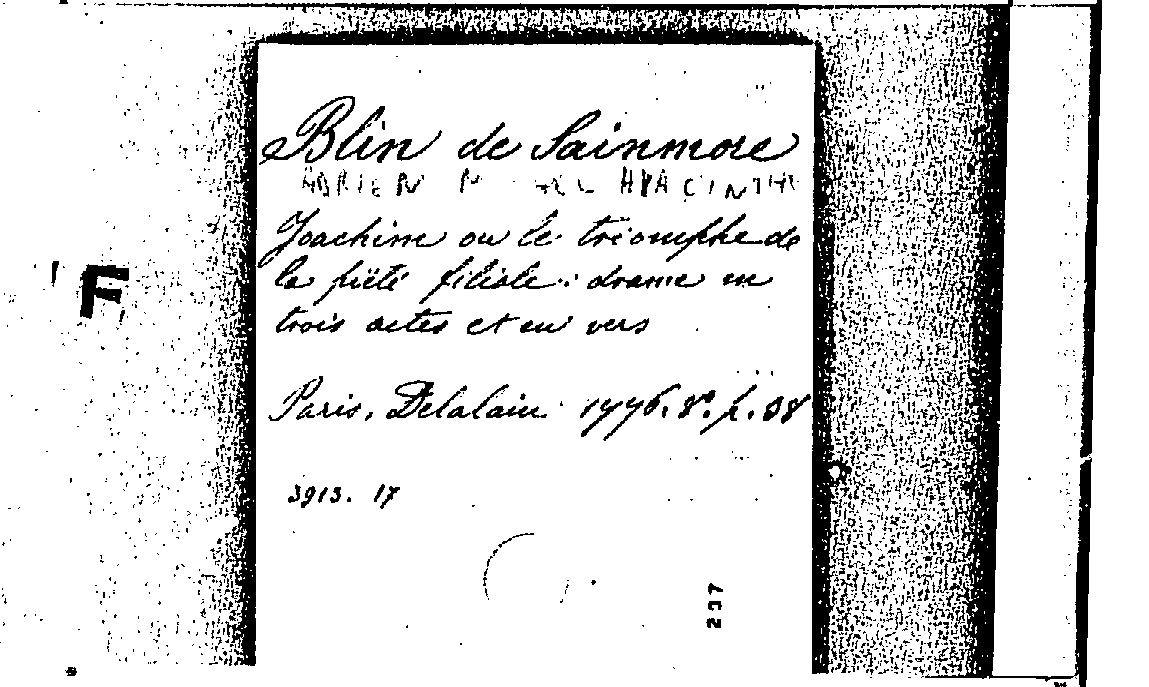 Blin de Sainmore
ADRIEN HYACINTHE
Joachim ou le triomphe de
la piété filiale: drame en
trois actes et en vers
Paris, Delalain 1776. 8º. p. 58
3913. 17
F
237